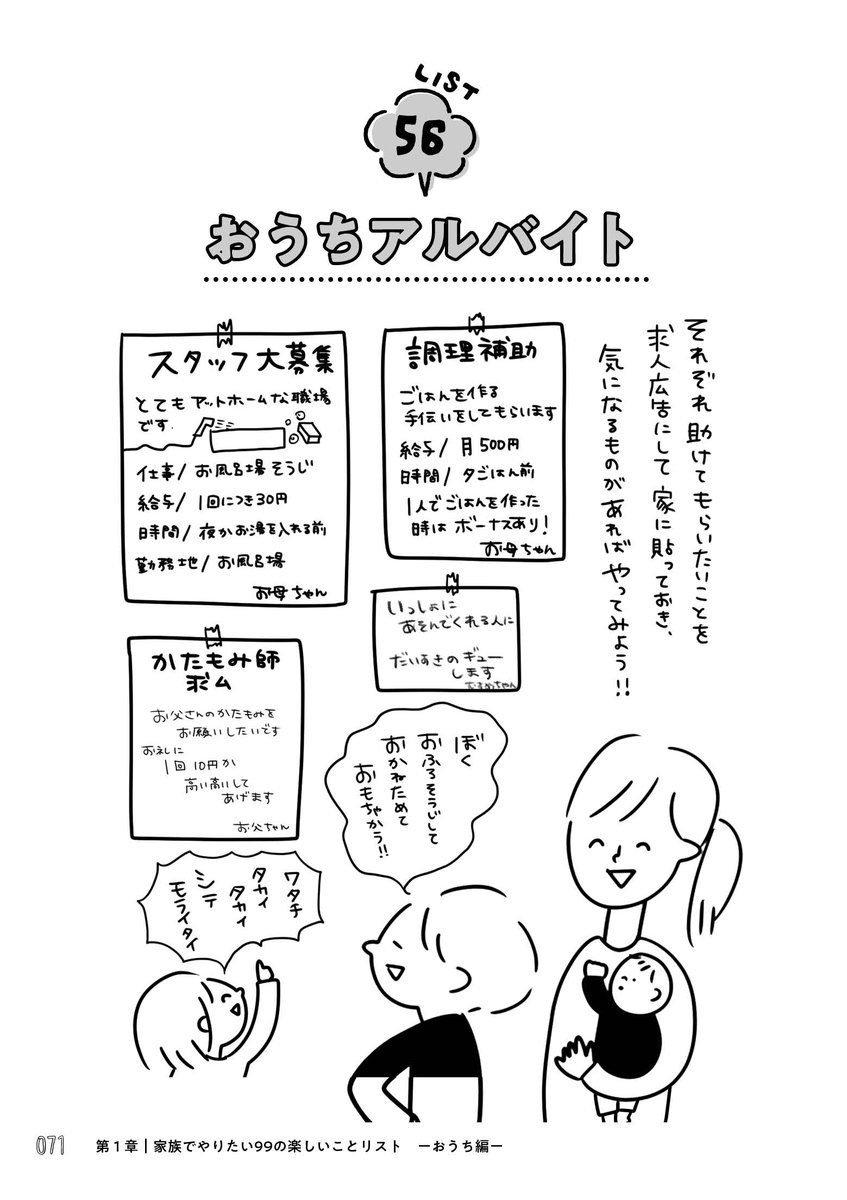 LIST
56
おうちアルバイト
それぞれ助けてもらいたいことを
求人広告にして家に貼っておき、
気になるものがあればやってみよう!!
スタッフ大募集
とてもアットホームな職場
です.
仕事/お風呂場そうじ
給与/1回につき30円
時間/夜かお湯を入れる前
勤務地/お風呂場
お母ちゃん
調理補助
ごはんを作る
手伝いをしてもらいます
給与/月500円
時間/夕ごはん前
1人でごはんを作った
時はボーナスあり!
お母ちゃん
いっしょに
あそんでくれる人に
だいすきのギュー
します
むすめちゃん
かたもみ師
求ム
お父さんのかたもみを
お願いしたいです
お礼に
1回10円か
高い高いして
あげます
お父ちゃん
ぼく
おふろそうじして
おかねためて
おもちゃかう!!
ワタチ
タカイ
タカイ
シテ
モライタイ
071
第1章|家族でやりたい99の楽しいことリスト ーおうち編ー